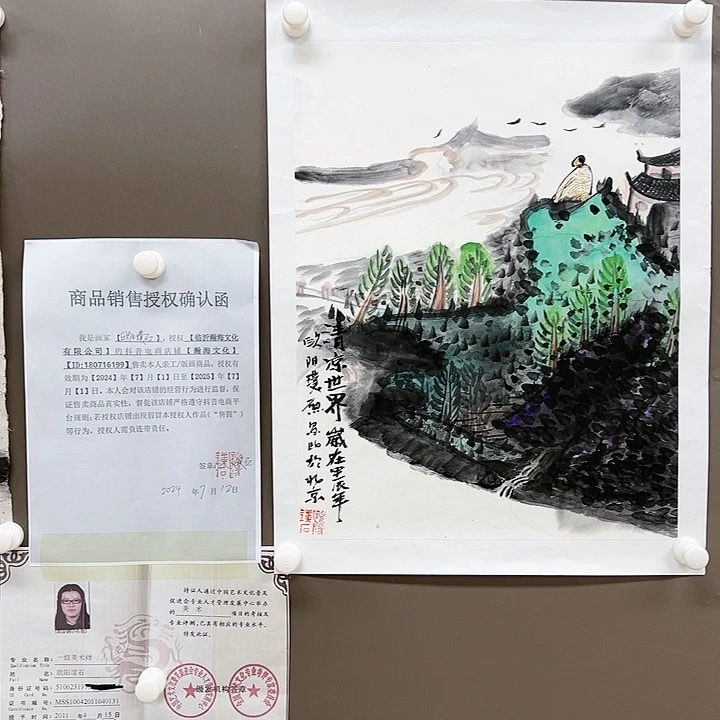 商品销售授权确认函
我是画家【欧阳璞石】，授权【临沂瀚海文化
有限公司】的抖音电商店铺【瀚海文化】
【ID:180716199】售卖本人亲工/版画商品，授权有
效期为【2024】年【7】月【1】日至【2025】年【7】
月【1】日。本人会对该店铺的经营行为进行监督，保
证售卖商品真实性，督促该店铺严格遵守抖音电商平
台规则;若授权店铺出现假冒本授权人作品（"售假"）
等行为，授权人需负连带责任。
签章:
2024 年 7 月 12 日
持证人通过中国艺术文化普及
促进会专业人才管理发展中心举办
的 美术 项目的考核及
专业评测,已具有相应的专业水平,
特发此证。
专业名称: 一级美术师
Qualification Title
姓名 欧阳璞石
Full Name
身份证号码: 5106231
ID Card No.
证书号码: MSS10042011040131
Certificate No.
授予时间: 2011 年 4 月 15 日
颁发机构签章
清凉世界 岁在甲辰年
欧阳璞石 於北京